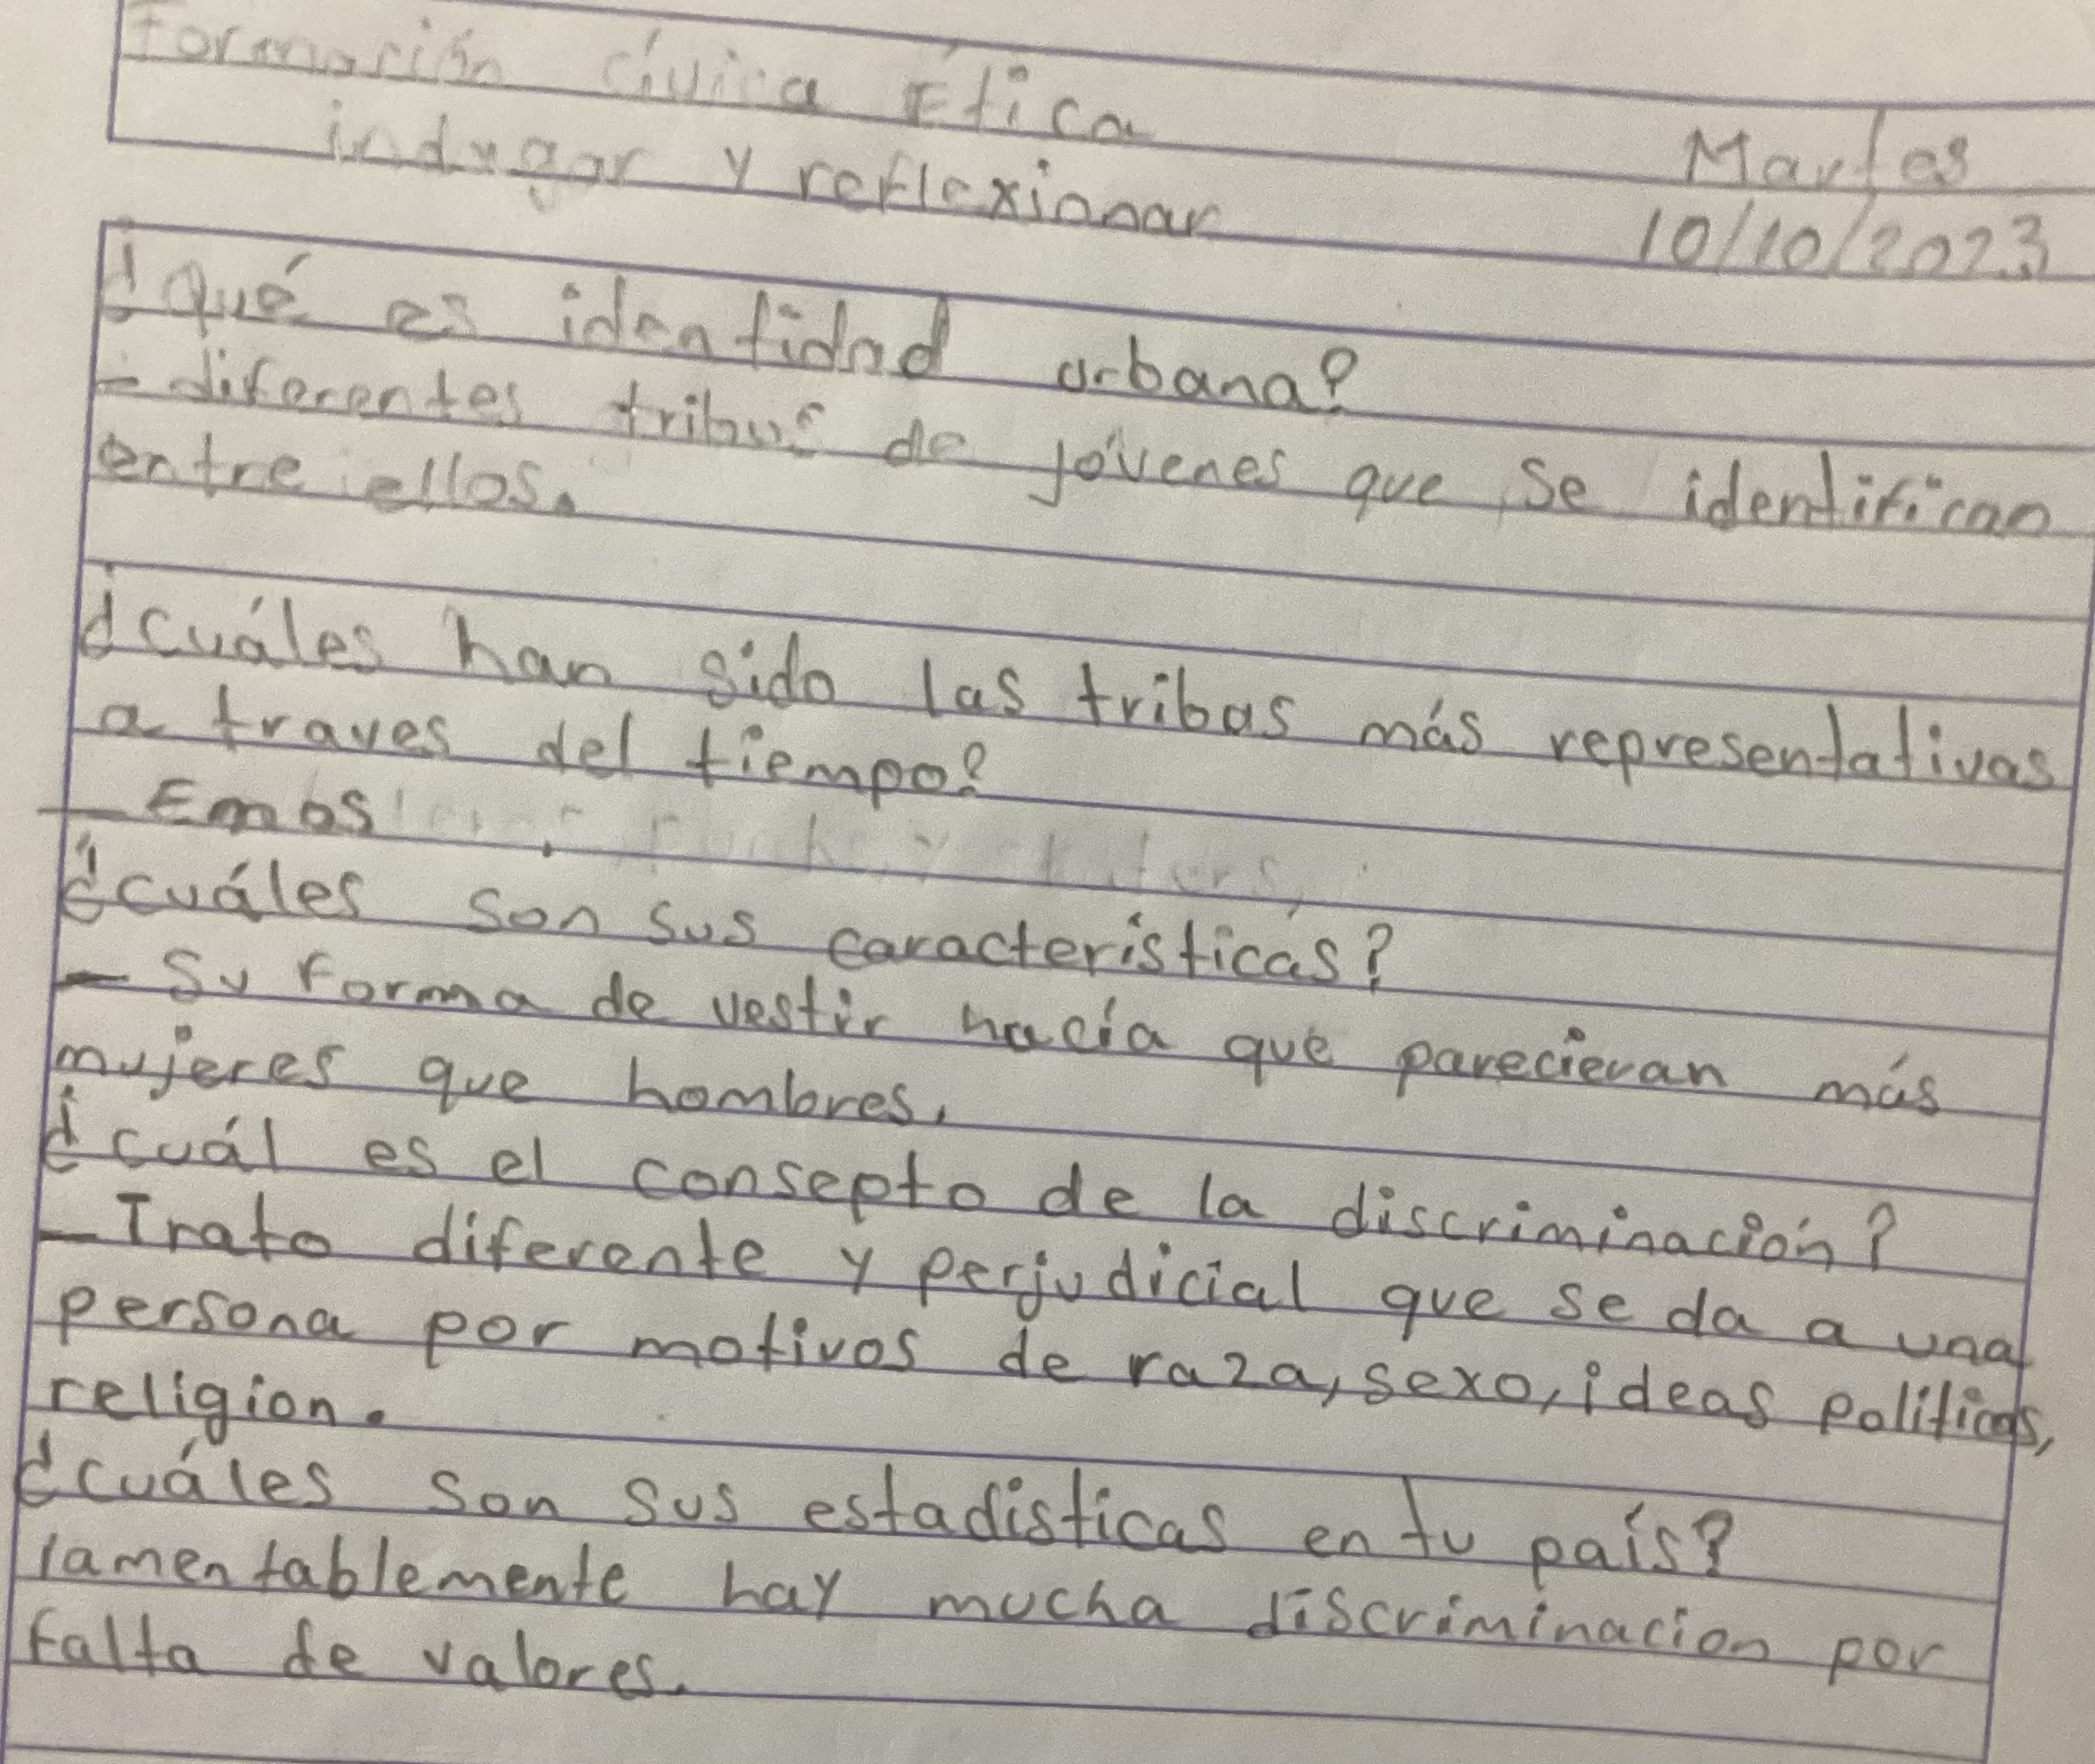 Formación cívica Ética
indugar y reflexionar
Martes
10/10/2023
¿Qué es identidad urbana?
- diferentes tribus de jóvenes que se identifican
entre ellos.
¿cuáles han sido las tribas más representativas
a traves del tiempo?
- Emos
¿cuáles son sus características?
- Su forma de vestir hacía que parecieran más
mujeres que hombres.
¿cuál es el consepto de la discriminación?
- Trato diferente y perjudicial que se da a una
persona por motivos de raza, sexo, ideas politicas,
religion.
¿cuáles son sus estadisticas en tu país?
lamentablemente hay mucha discriminacion por
falta de valores.